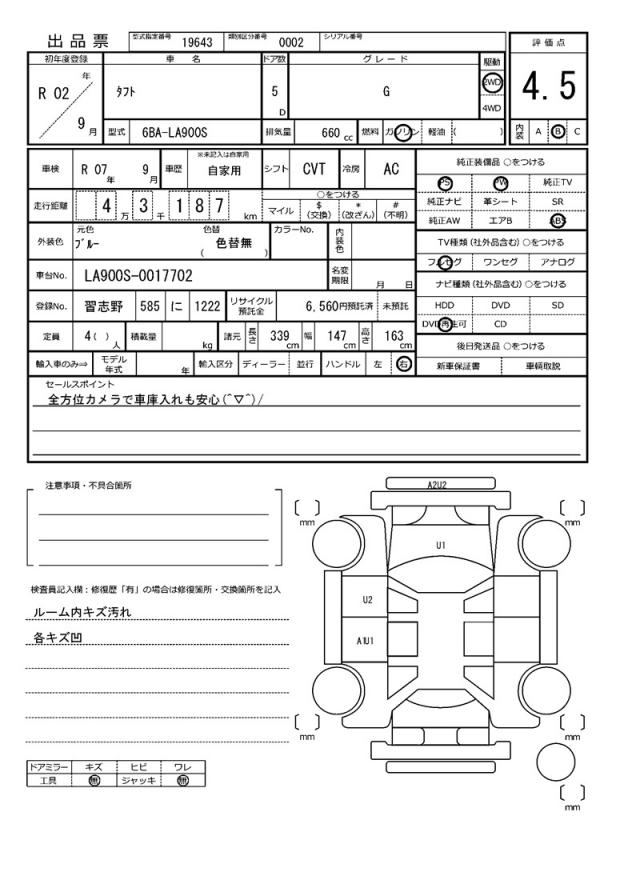 出品票 型式指定番号 19643 類別区分番号 0002 シリアル番号
初年度登録 車 名 ドア数 グレード 駆動 評価点
R 02 年 9 月 ﾀﾌﾄ 5 D G 2WD 4WD 4.5
型式 6BA-LA900S 排気量 660 cc 燃料 ガソリン 軽油 ( ) 内装 A B C
車検 R 07 年 9 月 車歴 ※未記入は自家用 自家用 シフト CVT 冷房 AC 純正装備品 ○をつける
PS PW 純正TV
走行距離 4 万 3 千 1 8 7 km ○をつける 純正ナビ 革シート SR
マイル $ (交換) * (改ざん) # (不明) 純正AW エアB ABS
外装色 元色 ﾌﾞﾙｰ 色替 ( 色替無 ) カラーNo. 内装色 TV種類 (社外品含む) ○をつける
フルセグ ワンセグ アナログ
車台No. LA900S-0017702 名変期限 月 日 ナビ種類 (社外品含む) ○をつける
登録No. 習志野 585 に 1222 リサイクル預託金 6,560 円預託済 未預託 HDD DVD SD
DVD再生可 CD
定員 4 ( ) 人 積載量 kg 諸元 長さ 339 cm 幅 147 cm 高さ 163 cm 後日発送品 ○をつける
輸入車のみ⇒ モデル年式 年 輸入区分 ディーラー 並行 ハンドル 左 右 新車保証書 車輌取説
セールスポイント
全方位カメラで車庫入れも安心(^▽^)/
注意事項・不具合箇所
A2U2
mm mm
U1
検査員記入欄：修復歴「有」の場合は修復箇所・交換箇所を記入
ルーム内キズ汚れ
U2
各キズ凹
A1U1
mm mm
ドアミラー キズ ヒビ ワレ
工具 無 ジャッキ 無
mm